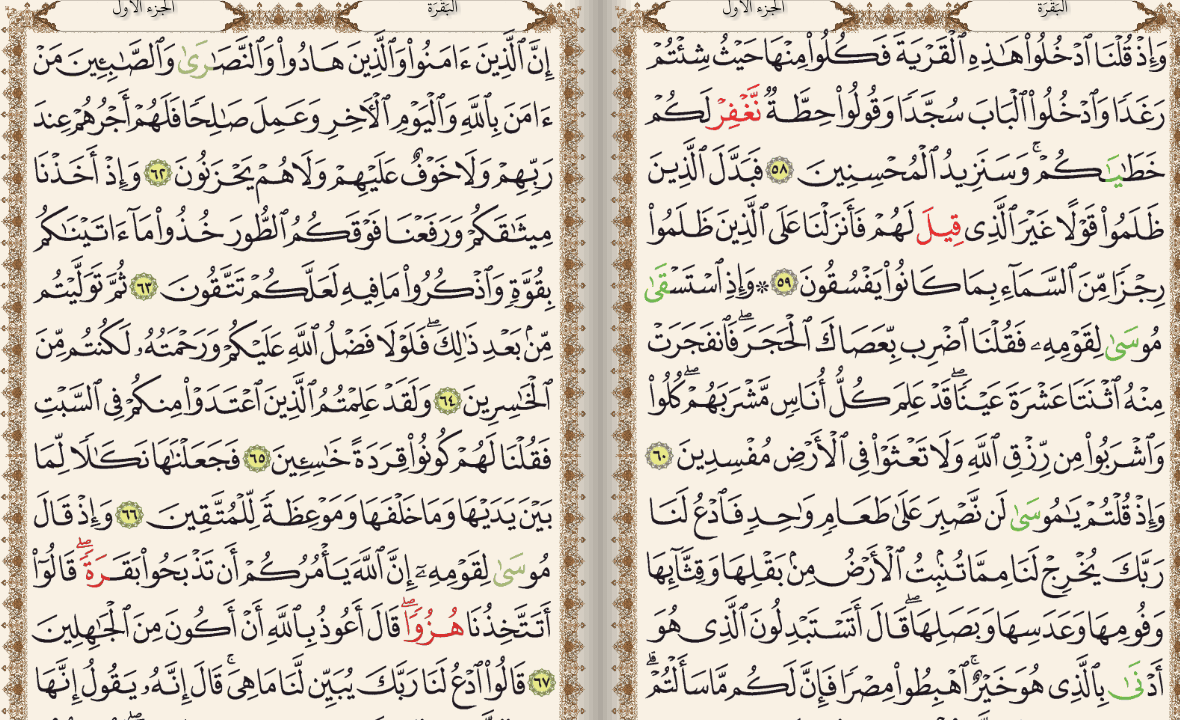 البَقَرَة
الجزء الأول
وَإِذۡ قُلۡنَا ٱدۡخُلُواْ هَٰذِهِ ٱلۡقَرۡيَةَ فَكُلُواْ مِنۡهَا حَيۡثُ شِئۡتُمۡ
رَغَدٗا وَٱدۡخُلُواْ ٱلۡبَابَ سُجَّدٗا وَقُولُواْ حِطَّةٞ نَّغۡفِرۡ لَكُمۡ
خَطَٰيَٰكُمۡۚ وَسَنَزِيدُ ٱلۡمُحۡسِنِينَ ٥٨ فَبَدَّلَ ٱلَّذِينَ
ظَلَمُواْ قَوۡلًا غَيۡرَ ٱلَّذِي قِيلَ لَهُمۡ فَأَنزَلۡنَا عَلَى ٱلَّذِينَ ظَلَمُواْ
رِجۡزٗا مِّنَ ٱلسَّمَآءِ بِمَا كَانُواْ يَفۡسُقُونَ ٥٩ ۞ وَإِذِ ٱسۡتَسۡقَىٰ
مُوسَىٰ لِقَوۡمِهِۦ فَقُلۡنَا ٱضۡرِب بِّعَصَاكَ ٱلۡحَجَرَۖ فَٱنفَجَرَتۡ
مِنۡهُ ٱثۡنَتَا عَشۡرَةَ عَيۡنٗاۖ قَدۡ عَلِمَ كُلُّ أُنَاسٖ مَّشۡرَبَهُمۡۖ كُلُواْ
وَٱشۡرَبُواْ مِن رِّزۡقِ ٱللَّهِ وَلَا تَعۡثَوۡاْ فِي ٱلۡأَرۡضِ مُفۡسِدِينَ ٦٠
وَإِذۡ قُلۡتُمۡ يَٰمُوسَىٰ لَن نَّصۡبِرَ عَلَىٰ طَعَامٖ وَٰحِدٖ فَٱدۡعُ لَنَا
رَبَّكَ يُخۡرِجۡ لَنَا مِمَّا تُنۢبِتُ ٱلۡأَرۡضُ مِنۢ بَقۡلِهَا وَقِثَّآئِهَا
وَفُومِهَا وَعَدَسِهَا وَبَصَلِهَاۖ قَالَ أَتَسۡتَبۡدِلُونَ ٱلَّذِي هُوَ
أَدۡنَىٰ بِٱلَّذِي هُوَ خَيۡرٌۚ ٱهۡبِطُواْ مِصۡرٗا فَإِنَّ لَكُم مَّا سَأَلۡتُمۡۗ
البَقَرَة
الجزء الأول
إِنَّ ٱلَّذِينَ ءَامَنُواْ وَٱلَّذِينَ هَادُواْ وَٱلنَّصَٰرَىٰ وَٱلصَّٰبِـِٔينَ مَنۡ
ءَامَنَ بِٱللَّهِ وَٱلۡيَوۡمِ ٱلۡأٓخِرِ وَعَمِلَ صَٰلِحٗا فَلَهُمۡ أَجۡرُهُمۡ عِندَ
رَبِّهِمۡ وَلَا خَوۡفٌ عَلَيۡهِمۡ وَلَا هُمۡ يَحۡزَنُونَ ٦٢ وَإِذۡ أَخَذۡنَا
مِيثَٰقَكُمۡ وَرَفَعۡنَا فَوۡقَكُمُ ٱلطُّورَ خُذُواْ مَآ ءَاتَيۡنَٰكُم
بِقُوَّةٖ وَٱذۡكُرُواْ مَا فِيهِ لَعَلَّكُمۡ تَتَّقُونَ ٦٣ ثُمَّ تَوَلَّيۡتُم
مِّنۢ بَعۡدِ ذَٰلِكَۖ فَلَوۡلَا فَضۡلُ ٱللَّهِ عَلَيۡكُمۡ وَرَحۡمَتُهُۥ لَكُنتُم مِّنَ
ٱلۡخَٰسِرِينَ ٦٤ وَلَقَدۡ عَلِمۡتُمُ ٱلَّذِينَ ٱعۡتَدَوۡاْ مِنكُمۡ فِي ٱلسَّبۡتِ
فَقُلۡنَا لَهُمۡ كُونُواْ قِرَدَةً خَٰسِـِٔينَ ٦٥ فَجَعَلۡنَٰهَا نَكَٰلٗا لِّمَا
بَيۡنَ يَدَيۡهَا وَمَا خَلۡفَهَا وَمَوۡعِظَةٗ لِّلۡمُتَّقِينَ ٦٦ وَإِذۡ قَالَ
مُوسَىٰ لِقَوۡمِهِۦٓ إِنَّ ٱللَّهَ يَأۡمُرُكُمۡ أَن تَذۡبَحُواْ بَقَرَةٗۖ قَالُوٓاْ
أَتَتَّخِذُنَا هُزُوٗاۖ قَالَ أَعُوذُ بِٱللَّهِ أَنۡ أَكُونَ مِنَ ٱلۡجَٰهِلِينَ
٦٧ قَالُواْ ٱدۡعُ لَنَا رَبَّكَ يُبَيِّن لَّنَا مَا هِيَۚ قَالَ إِنَّهُۥ يَقُولُ إِنَّهَا